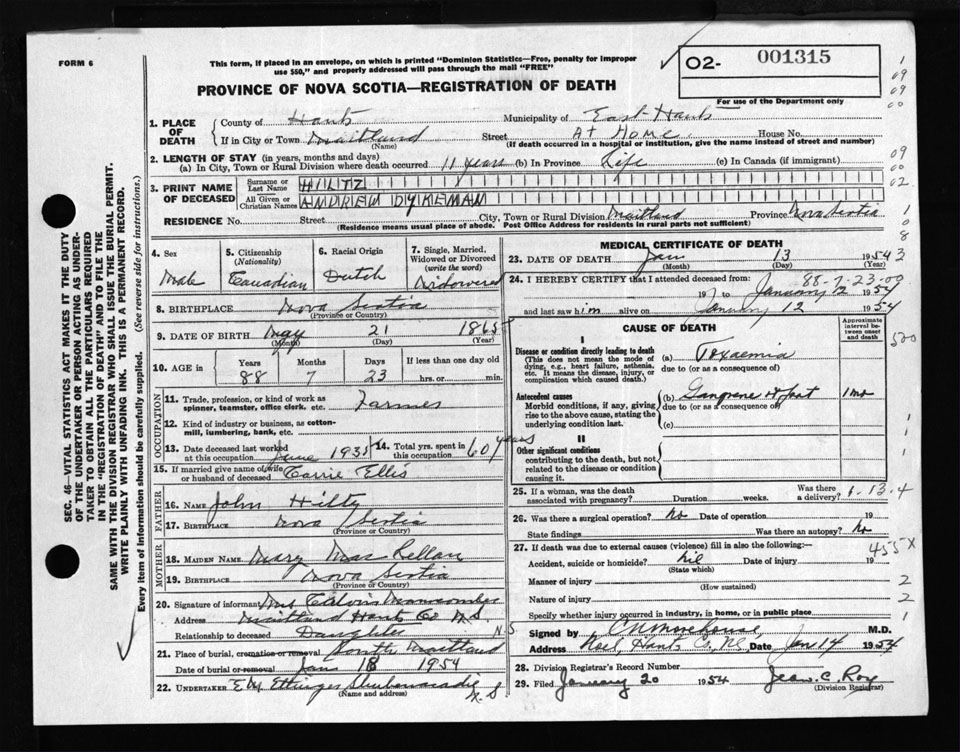 FORM 6
This form, if placed in an envelope, on which is printed "Dominion Statistics—Free, penalty for improper
use $50," and properly addressed will pass through the mail "FREE"
O2- 001315
For use of the Department only
PROVINCE OF NOVA SCOTIA—REGISTRATION OF DEATH
1. PLACE OF DEATH
County of Hants Municipality of East Hants
If in City or Town Maitland (Name) Street At Home House No.
(If death occurred in a hospital or institution, give the name instead of street and number)
2. LENGTH OF STAY (in years, months and days)
(a) In City, Town or Rural Division where death occurred 11 years (b) In Province Life (c) In Canada (if immigrant)
3. PRINT NAME OF DECEASED
Surname or Last Name HILTZ
All Given or Christian Names ANDREW DYKEMAN
RESIDENCE No. Street City, Town or Rural Division Maitland Province Nova Scotia
(Residence means usual place of abode. Post Office Address for residents in rural parts not sufficient)
4. Sex Male
5. Citizenship (Nationality) Canadian
6. Racial Origin Dutch
7. Single, Married, Widowed or Divorced (write the word) Widowered
8. BIRTHPLACE Nova Scotia
(Province or Country)
9. DATE OF BIRTH May 21 1865
(Month) (Day) (Year)
10. AGE in Years 88 Months 7 Days 23 If less than one day old hrs. or min.
OCCUPATION
11. Trade, profession, or kind of work as spinner, teamster, office clerk, etc. Farmer
12. Kind of industry or business, as cotton-mill, lumbering, bank, etc.
13. Date deceased last worked at this occupation June 1935
14. Total yrs. spent in this occupation 60 years
15. If married give name of wife or husband of deceased Carrie Ellis
FATHER
16. NAME John Hiltz
17. BIRTHPLACE Nova Scotia
(Province or Country)
MOTHER
18. MAIDEN NAME Mary
19. BIRTHPLACE Nova Scotia
(Province or Country)
20. Signature of informant Mrs Calvin
Address Maitland Hants Co N.S.
Relationship to deceased Daughter
21. Place of burial, cremation or removal South Maitland
Date of burial or removal Jan 18 1954
22. UNDERTAKER Ettinger Shubenacadie N.S
(Name and address)
MEDICAL CERTIFICATE OF DEATH
23. DATE OF DEATH Jan 13 1954 3
(Month) (Day) (Year)
24. I HEREBY CERTIFY that I attended deceased from: 88-7-23-00
January 12 1954
and last saw him alive on January 12 1954
CAUSE OF DEATH
Approximate interval between onset and death
I
Disease or condition directly leading to death
(This does not mean the mode of dying, e.g., heart failure, asthenia, etc. It means the disease, injury, or complication which caused death.)
(a) Toxaemia
due to (or as a consequence of)
Antecedent causes
Morbid conditions, if any, giving rise to the above cause, stating the underlying condition last.
(b) Gangrene of foot 1 mo
due to (or as a consequence of)
(c)
II
Other significant conditions
contributing to the death, but not related to the disease or condition causing it.
25. If a woman, was the death associated with pregnancy? Duration weeks. Was there a delivery? 1-13-4
26. Was there a surgical operation? No Date of operation 19
State findings Was there an autopsy? No
27. If death was due to external causes (violence) fill in also the following:— 455X
Accident, suicide or homicide? Nil Date of injury 19
(State which)
Manner of injury
(How sustained)
Nature of injury
Specify whether injury occurred in industry, in home, or in public place
Signed by Morehouse, M.D.
Address Noel, Hants Co. NS Date Jan 14 1954
28. Division Registrar's Record Number
29. Filed January 20 1954 Jean C. Roy
(Division Registrar)
SEC. 46—VITAL STATISTICS ACT MAKES IT THE DUTY
OF THE UNDERTAKER OR PERSON ACTING AS UNDER-
TAKER TO OBTAIN ALL THE PARTICULARS REQUIRED
IN THE "REGISTRATION OF DEATH" AND TO FILE THE
SAME WITH THE DIVISION REGISTRAR WHO SHALL ISSUE THE BURIAL PERMIT.
WRITE PLAINLY WITH UNFADING INK. THIS IS A PERMANENT RECORD.
Every item of Information should be carefully supplied. (See reverse side for instructions.)
1
09
09
00
09
00
02
1
0
8
500
1
1
1
2
2
1